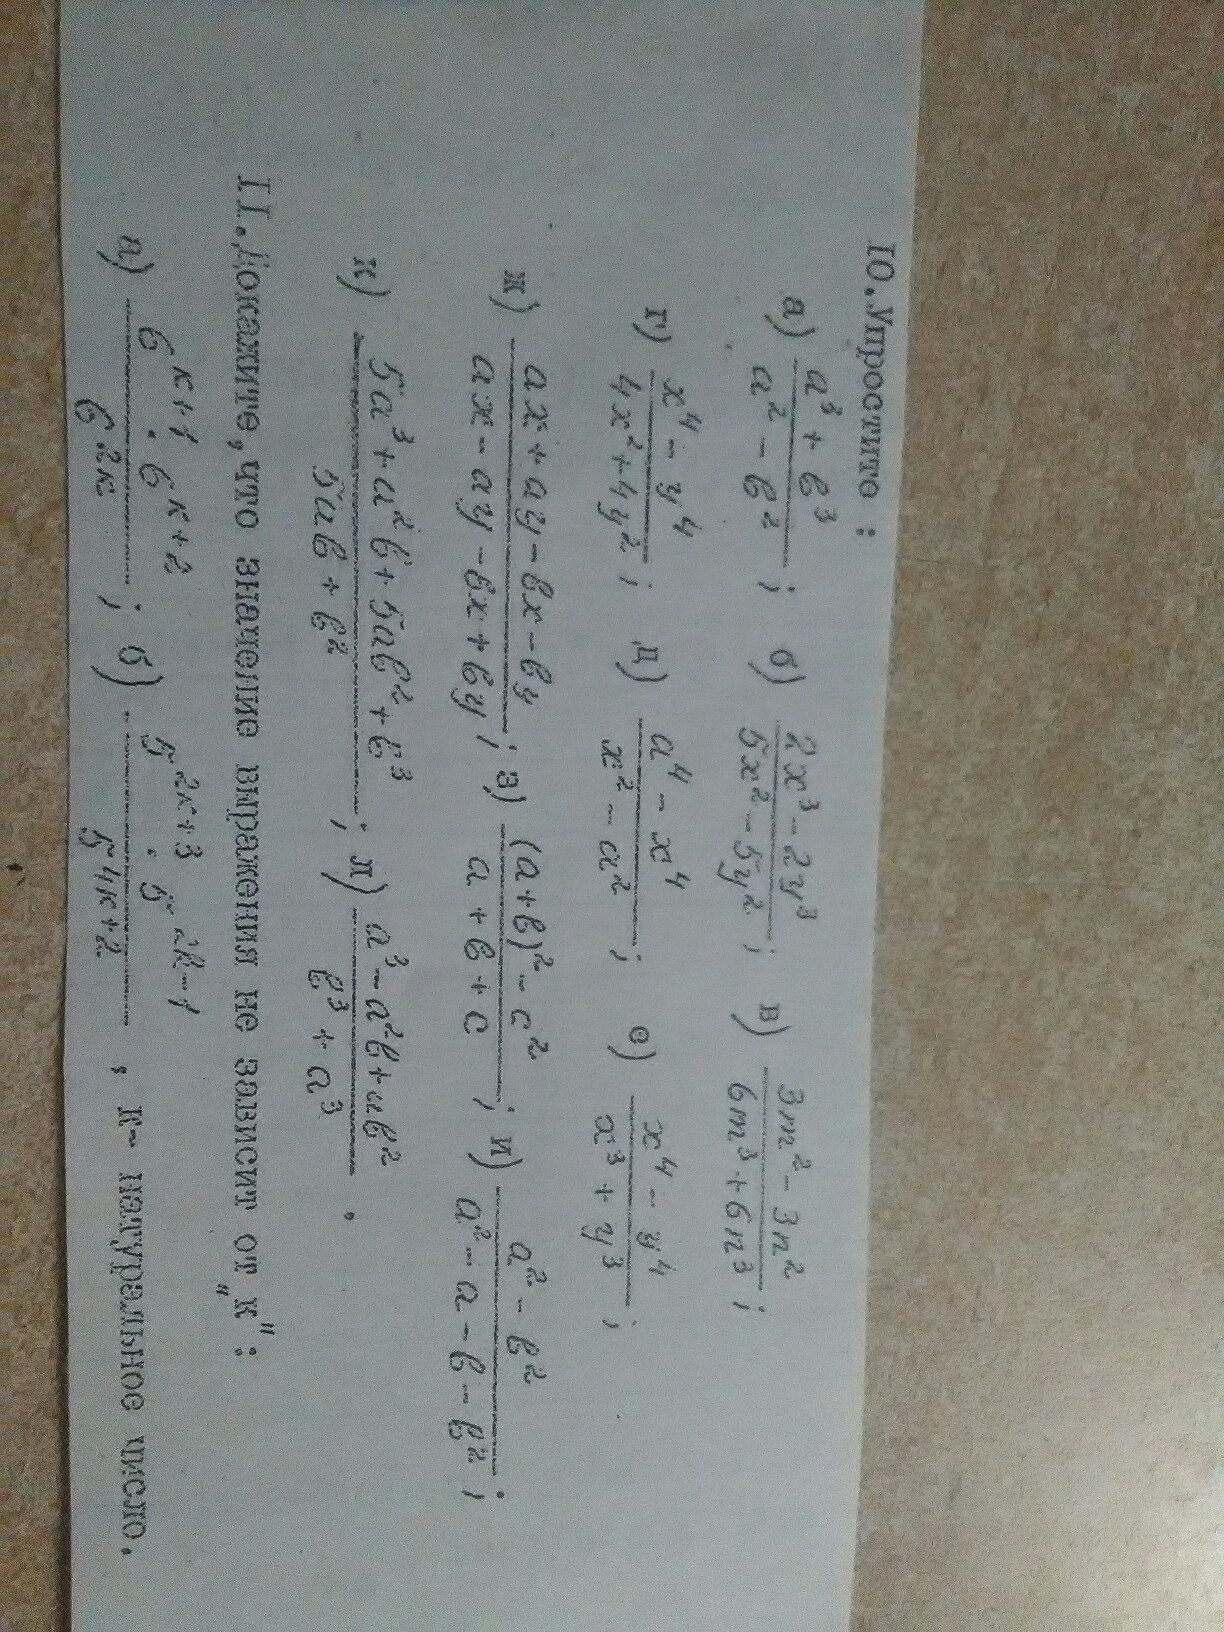 10. Упростите :
а) (a³ + в³)/(a² - в²) ; б) (2x³ - 2y³)/(5x² - 5y²) ; в) (3m² - 3n²)/(6m³ + 6n³) ;
г) (x⁴ - y⁴)/(4x² + 4y²) ; д) (a⁴ - x⁴)/(x² - a²) ; е) (x⁴ - y⁴)/(x³ + y³) ;
ж) (ax + ay - вx - вy)/(ax - ay - вx + вy) ; з) ((a + в)² - c²)/(a + в + c) ; и) (a² - в²)/(a² - a - в - в²) ;
к) (5a³ + a²в + 5aв² + в³)/(5aв + в²) ; л) (a³ - a²в + aв²)/(в³ + a³) .
11. Докажите, что значение выражения не зависит от „к" :
а) (6ᵏ⁺¹ · 6ᵏ⁺²)/6²ᵏ ; б) (5²ᵏ⁺³ · 5²ᵏ⁻¹)/5⁴ᵏ⁺² , к - натуральное число.